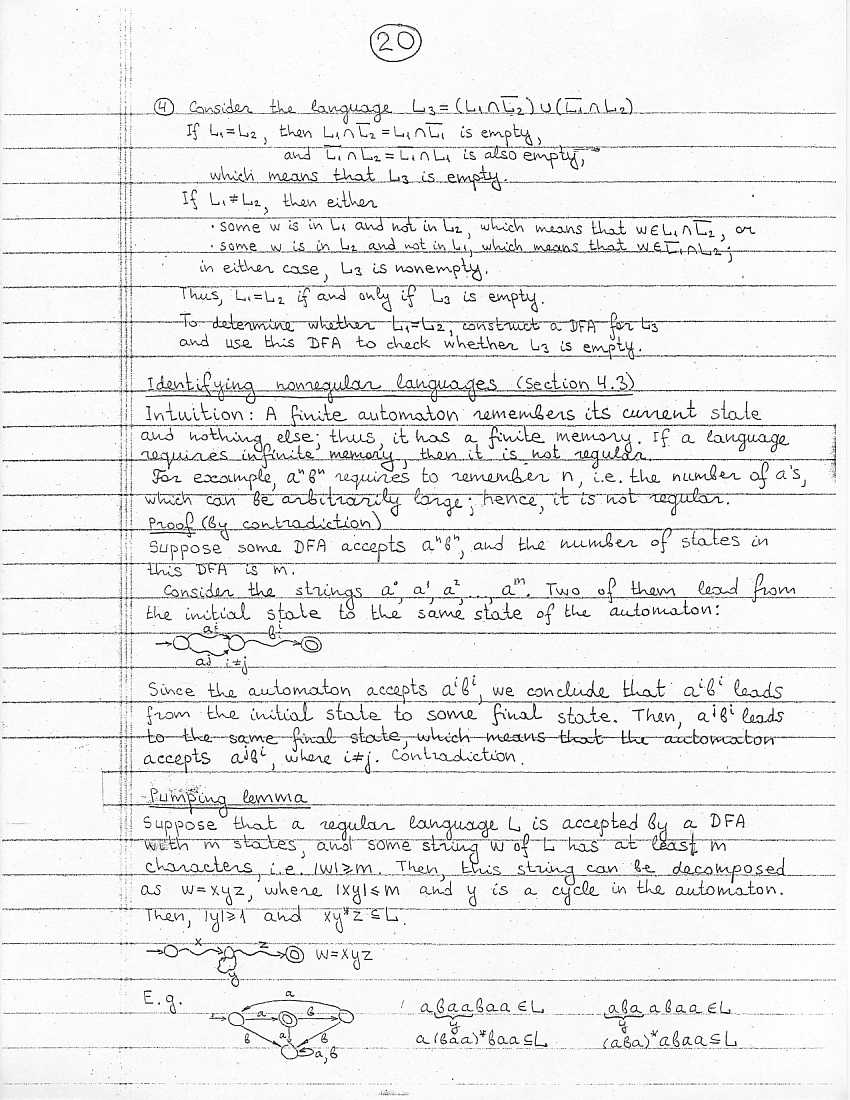 20
④ Consider the language L₃=(L₁∩L̅₂)∪(L̅₁∩L₂)
If L₁=L₂, then L₁∩L̅₂=L₁∩L̅₁ is empty,
and L̅₁∩L₂=L̅₁∩L₁ is also empty,
which means that L₃ is empty.
If L₁≠L₂, then either
· some w is in L₁ and not in L₂, which means that w∈L₁∩L̅₂, or
· some w is in L₂ and not in L₁, which means that w∈L̅₁∩L₂;
in either case, L₃ is nonempty.
Thus, L₁=L₂ if and only if L₃ is empty.
To determine whether L₁=L₂, construct a DFA for L₃
and use this DFA to check whether L₃ is empty.
Identifying nonregular languages (Section 4.3)
Intuition: A finite automaton remembers its current state
and nothing else; thus, it has a finite memory. If a language
requires infinite memory, then it is not regular.
For example, aⁿbⁿ requires to remember n, i.e. the number of a's,
which can be arbitrarily large; hence, it is not regular.
Proof (by contradiction)
Suppose some DFA accepts aⁿbⁿ, and the number of states in
this DFA is m.
Consider the strings a⁰, a¹, a², ..., aᵐ. Two of them lead from
the initial state to the same state of the automaton:
aⁱ bⁱ
aʲ i≠j
Since the automaton accepts aⁱbⁱ, we conclude that aⁱbⁱ leads
from the initial state to some final state. Then, aʲbⁱ leads
to the same final state, which means that the automaton
accepts aʲbⁱ, where i≠j. Contradiction.
Pumping lemma
Suppose that a regular language L is accepted by a DFA
with m states, and some string w of L has at least m
characters, i.e. |w|≥m. Then, this string can be decomposed
as w=xyz, where |xy|≤m and y is a cycle in the automaton.
Then, |y|≥1 and xy*z⊆L.
x z w=xyz
y
E.g. a abaabaa∈L aba abaa∈L
a b y y
b a b a(baa)*baa⊆L (aba)*abaa⊆L
a,b